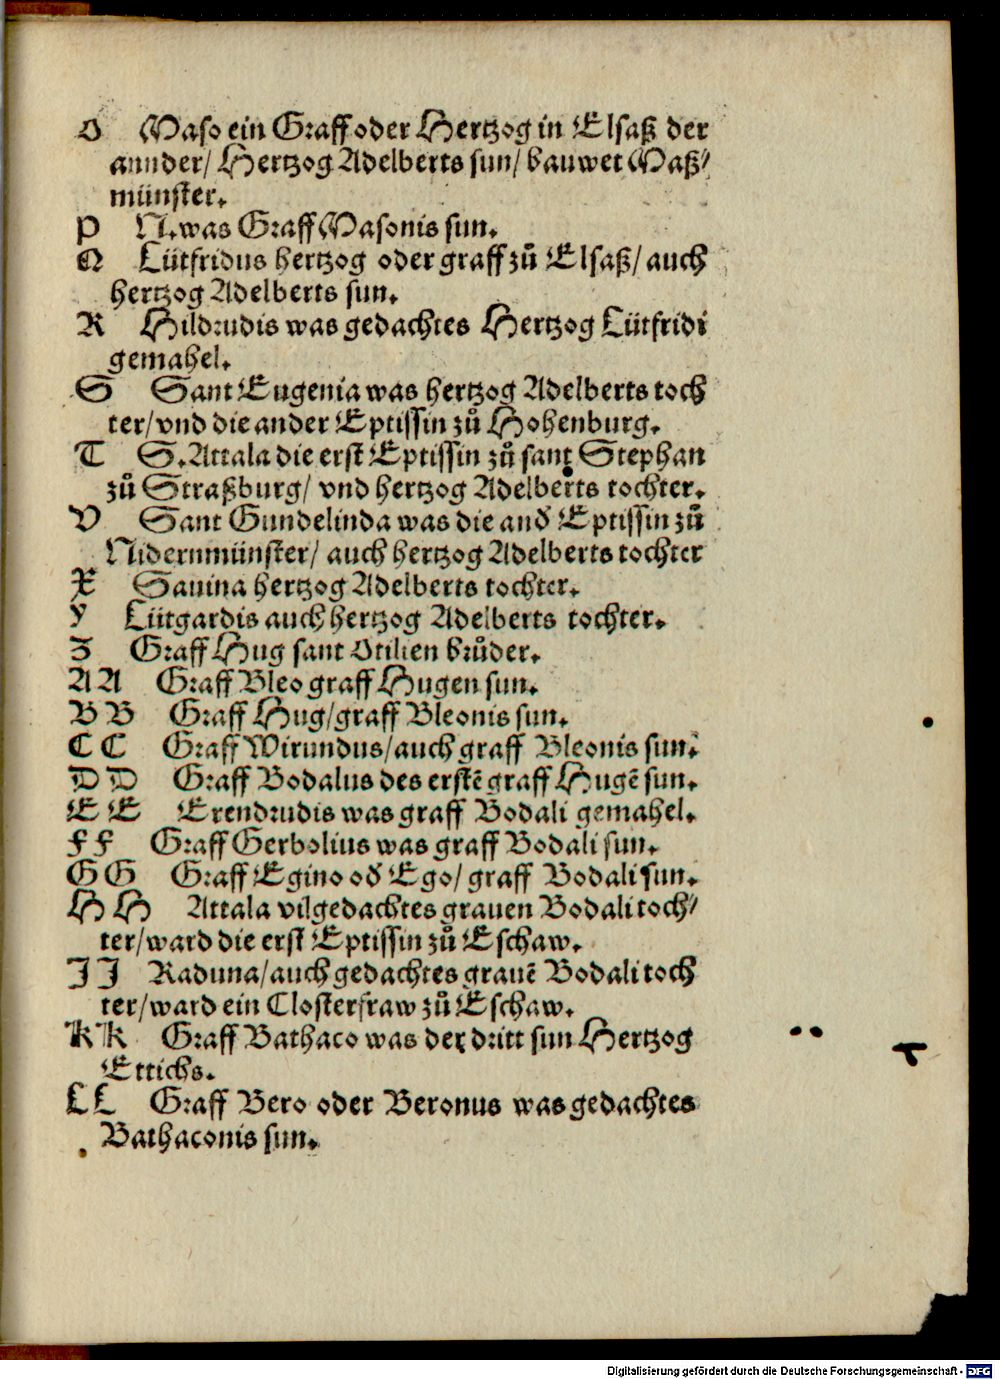 O Maso ein Graff oder Hertzog in Elsaß der
annder/ Hertzog Adelberts sun/ bauwet Maß⸗
münster.
P N. was Graff Masonis sun.
Q Lütfridus hertzog oder graff zů Elsaß/ auch
hertzog Adelberts sun.
R Hildrudis was gedachtes Hertzog Lütfridi
gemahel.
S Sant Eugenia was hertzog Adelberts toch
ter/ vnd die ander Eptissin zů Hohenburg.
T S. Attala die erst Eptissin zů sant Stephan
zů Straßburg/ vnd hertzog Adelberts tochter.
V Sant Gundelinda was die and̃ Eptissin zů
Nidernmünster/ auch hertzog Adelberts tochter
X Sauina hertzog Adelberts tochter.
Y Lütgardis auch hertzog Adelberts tochter.
Z Graff Hug sant Otilien brůder.
AA Graff Bleo graff Hugen sun.
BB Graff Hug/ graff Bleonis sun.
CC Graff Wirundus/ auch graff Bleonis sun.
DD Graff Bodalus des erstē graff Hugē sun.
EE Erendrudis was graff Bodali gemahel.
FF Graff Gerbolius was graff Bodali sun.
GG Graff Egino od̃ Ego/ graff Bodali sun.
HH Attala vilgedachtes grauen Bodali toch⸗
ter/ ward die erst Eptissin zů Eschaw.
JJ Raduna/ auch gedachtes grauē Bodali toch
ter/ ward ein Closterfraw zů Eschaw.
KK Graff Bathaco was der dritt sun Hertzog
Ettichs.
LL Graff Bero oder Beronus was gedachtes
Bathaconis sun.
Digitalisierung gefördert durch die Deutsche Forschungsgemeinschaft - DFG